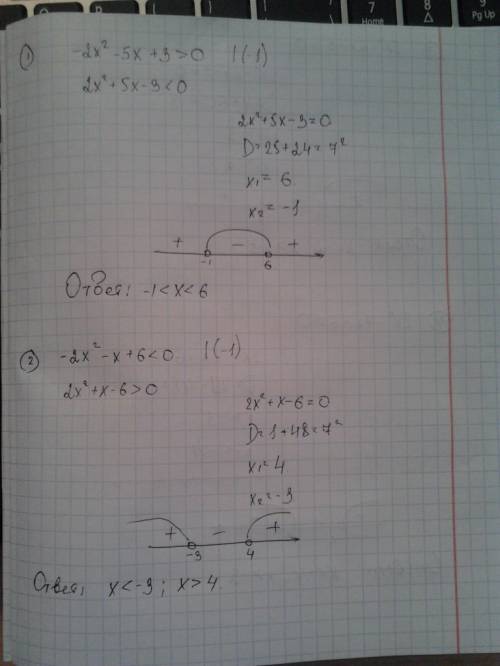 7
Home
8
9
Pg Up
1 -2x² -5x +3 > 0 |(-1)
2x² + 5x - 3 < 0
2x² + 5x - 3 = 0
D = 25 + 24 = 7²
x₁ = 6
x₂ = -1
+ - +
-1 6
Ответ: -1 < x < 6
2 -2x² - x + 6 < 0 |(-1)
2x² + x - 6 > 0
2x² + x - 6 = 0
D = 1 + 48 = 7²
x₁ = 4
x₂ = -3
+ - +
-3 4
Ответ: x < -3 ; x > 4